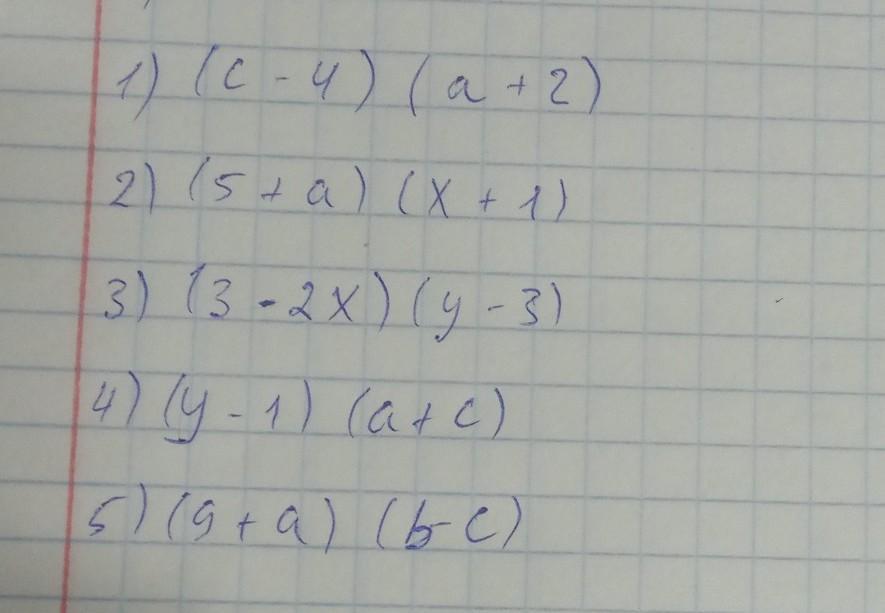 1) (c - 4) (a + 2)
2) (5 + a) (x + 1)
3) (3 - 2x) (y - 3)
4) (y - 1) (a + c)
5) (9 + a) (b - c)